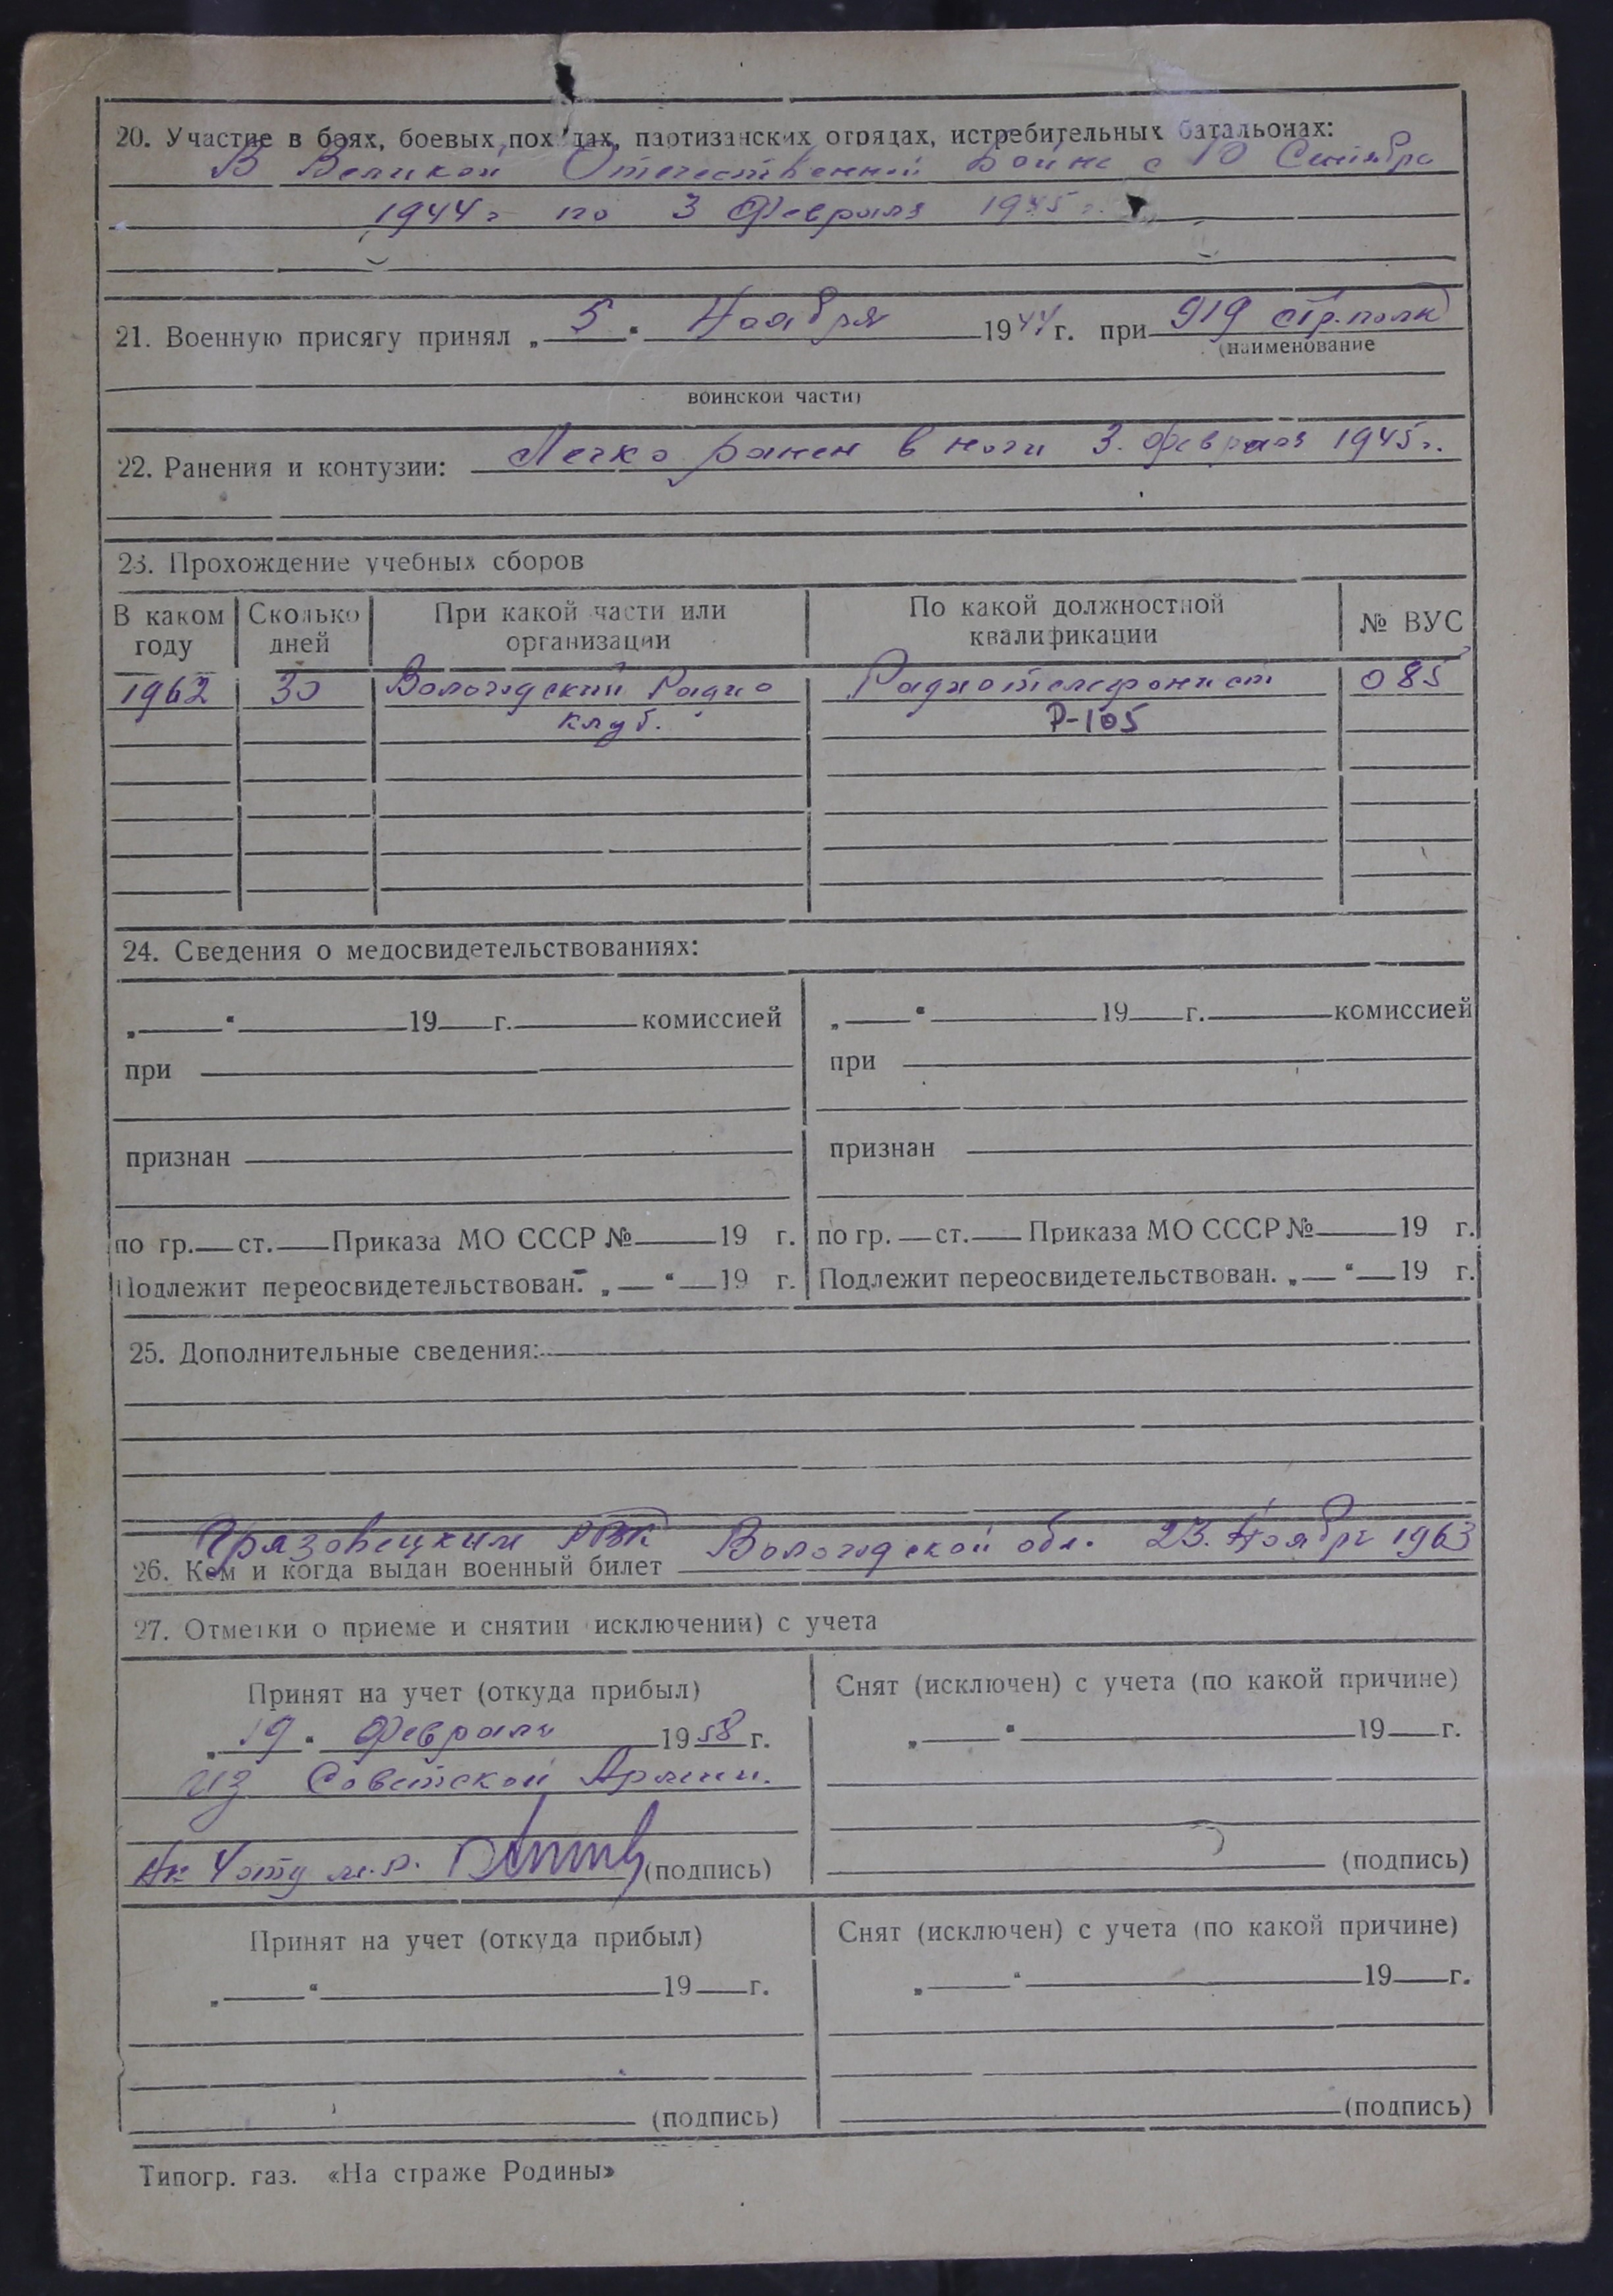 20. Участие в боях, боевых походах, партизанских отрядах, истребительных батальонах:
В Великой Отечественной войне с 10 Сентября
1944 г по 3 Февраля 1945 г.
21. Военную присягу принял „ 5 “ Ноября 1944 г. при 919 стр. полк
(наименование
воинской части)
22. Ранения и контузии: Легко ранен в ноги 3. февраля 1945 г.
23. Прохождение учебных сборов
В каком году | Сколько дней | При какой части или организации | По какой должностной квалификации | № ВУС
1962 | 30 | Вологодский Радио | Радиотелефонист | 085
клуб. | Р-105
24. Сведения о медосвидетельствованиях:
„ “ 19 г. комиссией | „ “ 19 г. комиссией
при | при
признан | признан
по гр. ст. Приказа МО СССР № 19 г. | по гр. ст. Приказа МО СССР № 19 г.
Подлежит переосвидетельствован. „ “ 19 г. | Подлежит переосвидетельствован. „ “ 19 г.
25. Дополнительные сведения:
Грязовецким РВК Вологодской обл. 23. Ноября 1963
26. Кем и когда выдан военный билет
27. Отметки о приеме и снятии (исключении) с учета
Принят на учет (откуда прибыл) | Снят (исключен) с учета (по какой причине)
„ 19 “ Февраля 1958 г. | „ “ 19 г.
из Советской Армии.
(подпись) | (подпись)
Принят на учет (откуда прибыл) | Снят (исключен) с учета (по какой причине)
„ “ 19 г. | „ “ 19 г.
(подпись) | (подпись)
Типогр. газ. «На страже Родины»